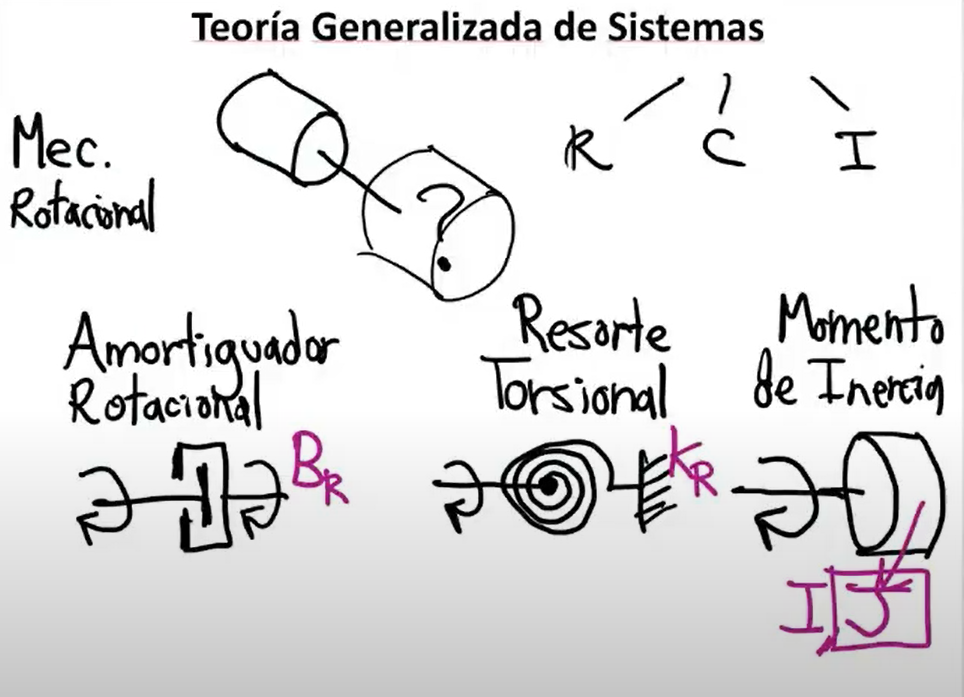 Teoría Generalizada de Sistemas
Mec.
Rotacional
?
R C I
Amortiguador
Rotacional
Resorte
Torsional
Momento
de Inercia
BR
KR
I, J